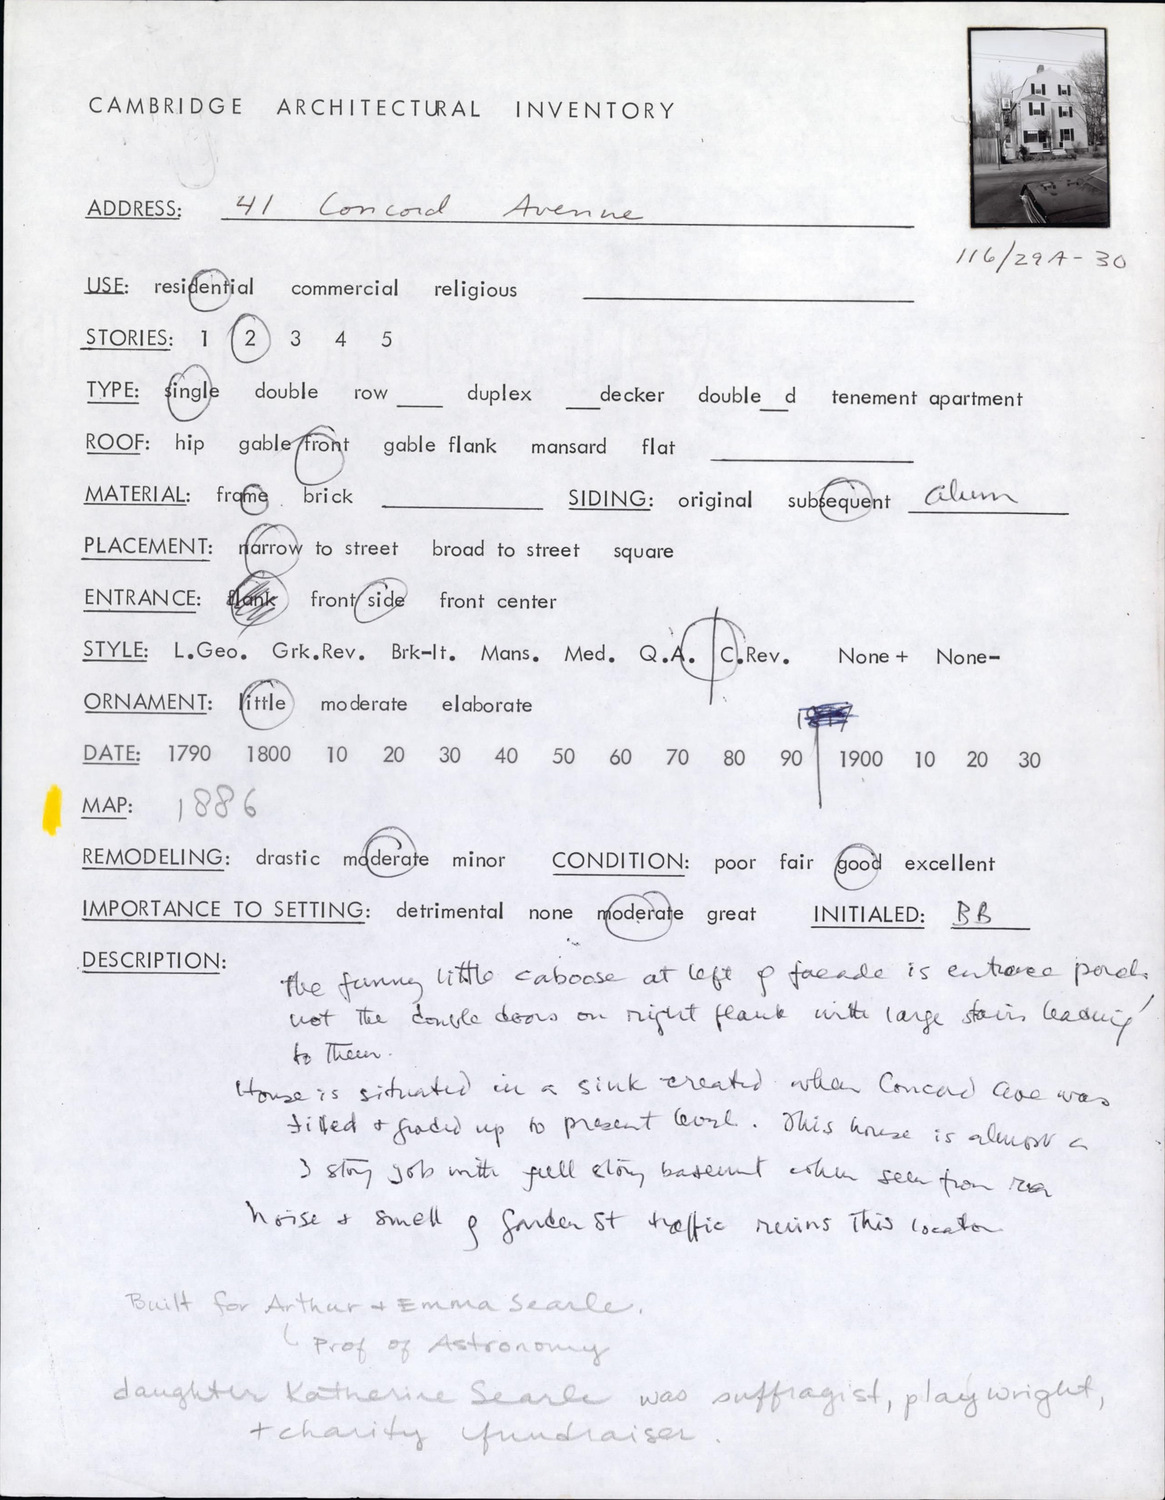 CAMBRIDGE ARCHITECTURAL INVENTORY
ADDRESS: 41 Concord Avenue
116/29A-30
USE: residential commercial religious
STORIES: 1 2 3 4 5
TYPE: single double row ___ duplex ___decker double__d tenement apartment
ROOF: hip gable front gable flank mansard flat
MATERIAL: frame brick SIDING: original subsequent alum
PLACEMENT: narrow to street broad to street square
ENTRANCE: flank front side front center
STYLE: L.Geo. Grk.Rev. Brk-It. Mans. Med. Q.A. C.Rev. None+ None-
ORNAMENT: little moderate elaborate
DATE: 1790 1800 10 20 30 40 50 60 70 80 90 1900 10 20 30
MAP: 1886
REMODELING: drastic moderate minor CONDITION: poor fair good excellent
IMPORTANCE TO SETTING: detrimental none moderate great INITIALED: BB
DESCRIPTION:
the funny little caboose at left of facade is entrance porch
not the double doors on right flank with large stairs leading
to them.
House is situated in a sink created when Concord Ave was
filled + graded up to present level. This house is almost a
3 story job with full story basement when seen from rear
Noise + smell of Garden St traffic ruins this location
Built for Arthur + Emma Searle.
Prof of Astronomy
daughter Katherine Searle was suffragist, playwright,
+ charity fundraiser.